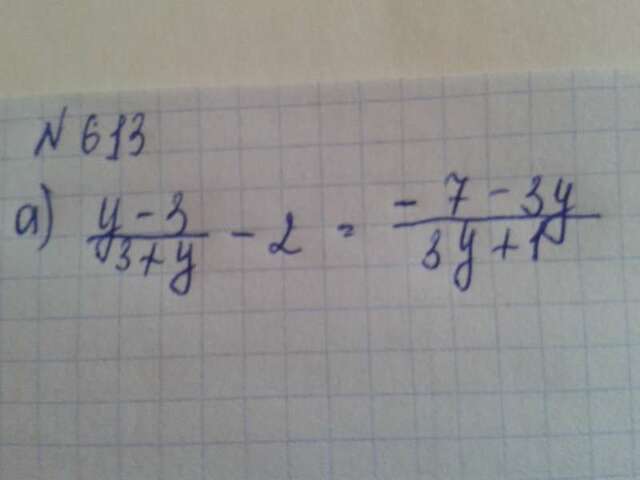 N 613
а) (y - 3)/(3 + y) - 2 = (- 7 - 3y)/(3y + 1)